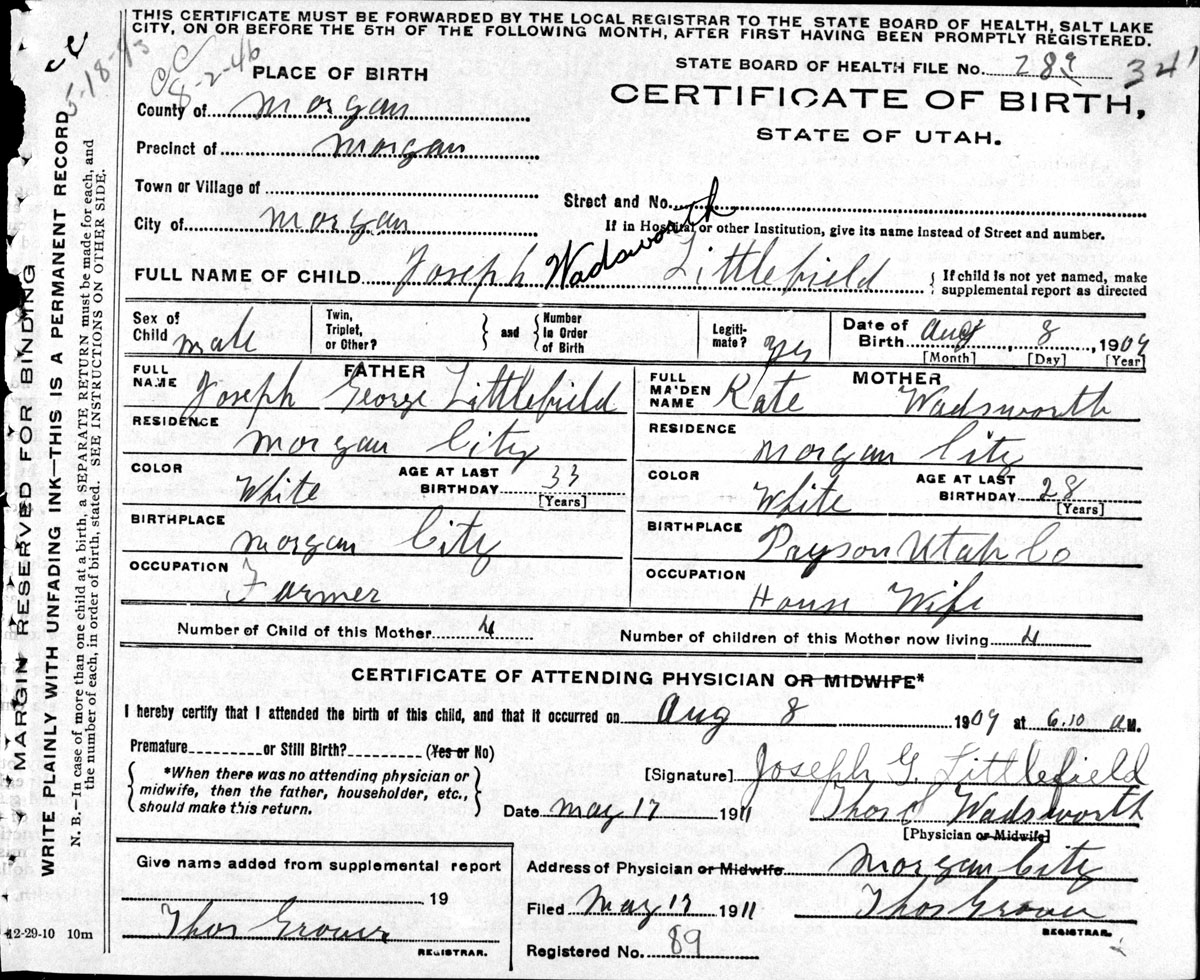 THIS CERTIFICATE MUST BE FORWARDED BY THE LOCAL REGISTRAR TO THE STATE BOARD OF HEALTH, SALT LAKE
CITY, ON OR BEFORE THE 5TH OF THE FOLLOWING MONTH, AFTER FIRST HAVING BEEN PROMPTLY REGISTERED.
CC
8-2-46
STATE BOARD OF HEALTH FILE No. 341
CERTIFICATE OF BIRTH,
STATE OF UTAH.
PLACE OF BIRTH
County of Morgan
Precinct of Morgan
Town or Village of
Street and No.
City of Morgan
If in Hospital or other Institution, give its name instead of Street and number.
FULL NAME OF CHILD Joseph Wadsworth Littlefield
{ If child is not yet named, make
supplemental report as directed
Sex of Child male
Twin, Triplet, or Other? } and { Number In Order of Birth
Legiti- mate? yes
Date of Birth Aug 8, 1909
[Month] [Day] [Year]
FATHER
FULL NAME Joseph George Littlefield
RESIDENCE Morgan City
COLOR White AGE AT LAST BIRTHDAY 33
[Years]
BIRTHPLACE Morgan City
OCCUPATION Farmer
MOTHER
FULL MAIDEN NAME Kate Wadsworth
RESIDENCE Morgan City
COLOR White AGE AT LAST BIRTHDAY 28
[Years]
BIRTHPLACE Payson Utah Co
OCCUPATION House Wife
Number of Child of this Mother 4
Number of children of this Mother now living 4
CERTIFICATE OF ATTENDING PHYSICIAN OR MIDWIFE*
I hereby certify that I attended the birth of this child, and that it occurred on Aug 8 1909 at 6.10 a M.
Premature or Still Birth? (Yes or No)
{ *When there was no attending physician or
midwife, then the father, householder, etc.,
should make this return. }
[Signature] Joseph G. Littlefield
Date May 17 1911 Thos Wadsworth
[Physician or Midwife]
Give name added from supplemental report
19
Thos Grover
REGISTRAR.
Address of Physician or Midwife Morgan City
Filed May 17 1911 Thos Grover
REGISTRAR.
Registered No. 89
12-29-10 10m
MARGIN RESERVED FOR BINDING
WRITE PLAINLY WITH UNFADING INK—THIS IS A PERMANENT RECORD
N. B.—In case of more than one child at a birth, a SEPARATE RETURN must be made for each, and
the number of each, in order of birth, stated. SEE INSTRUCTIONS ON OTHER SIDE.